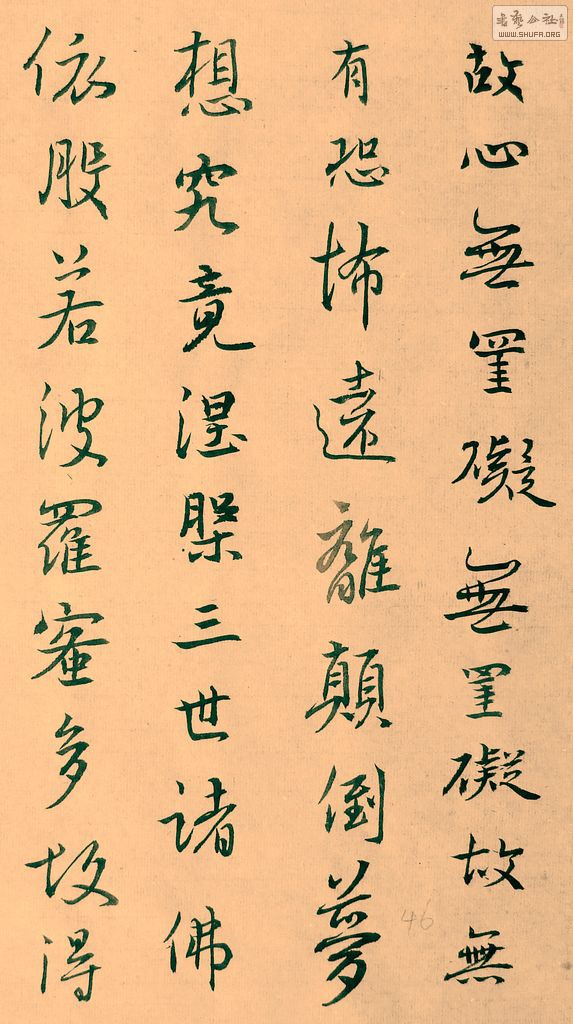 故心無罣礙無罣礙故無
有恐怖遠離顛倒夢
想究竟涅槃三世諸佛
依般若波羅蜜多故得
46
書藝公社
WWW.SHUFA.ORG